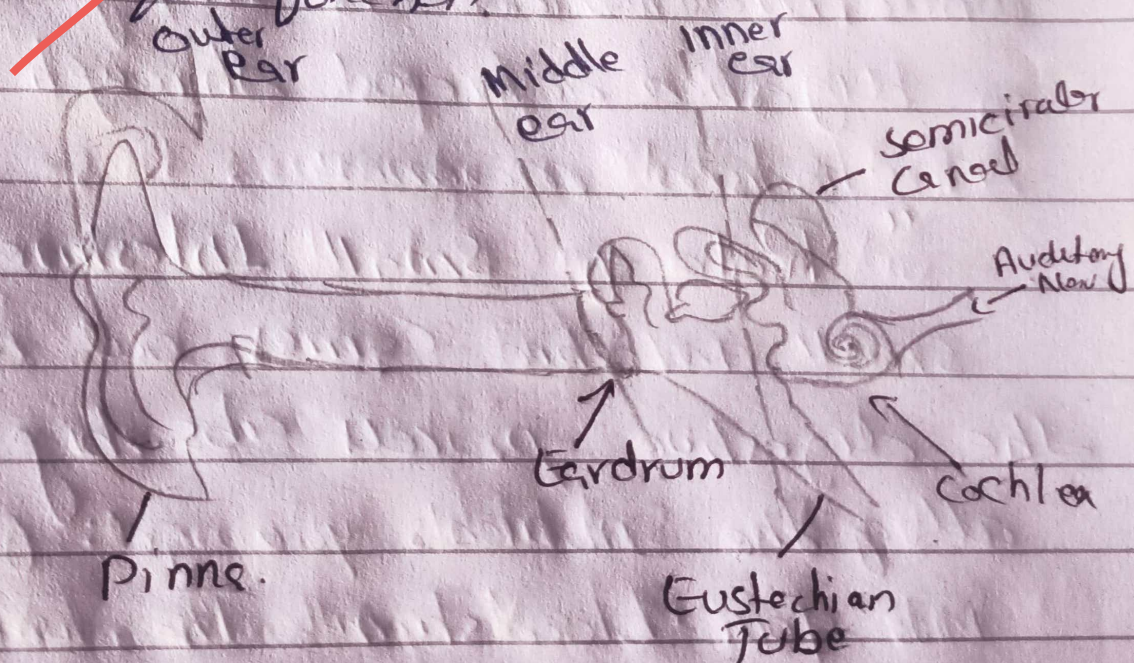 Outer
Ear
Middle
ear
Inner
ear
Semicirular
Canal
Auditory
Eardrum
Cochlea
Pinna.
Eustechian
Tube